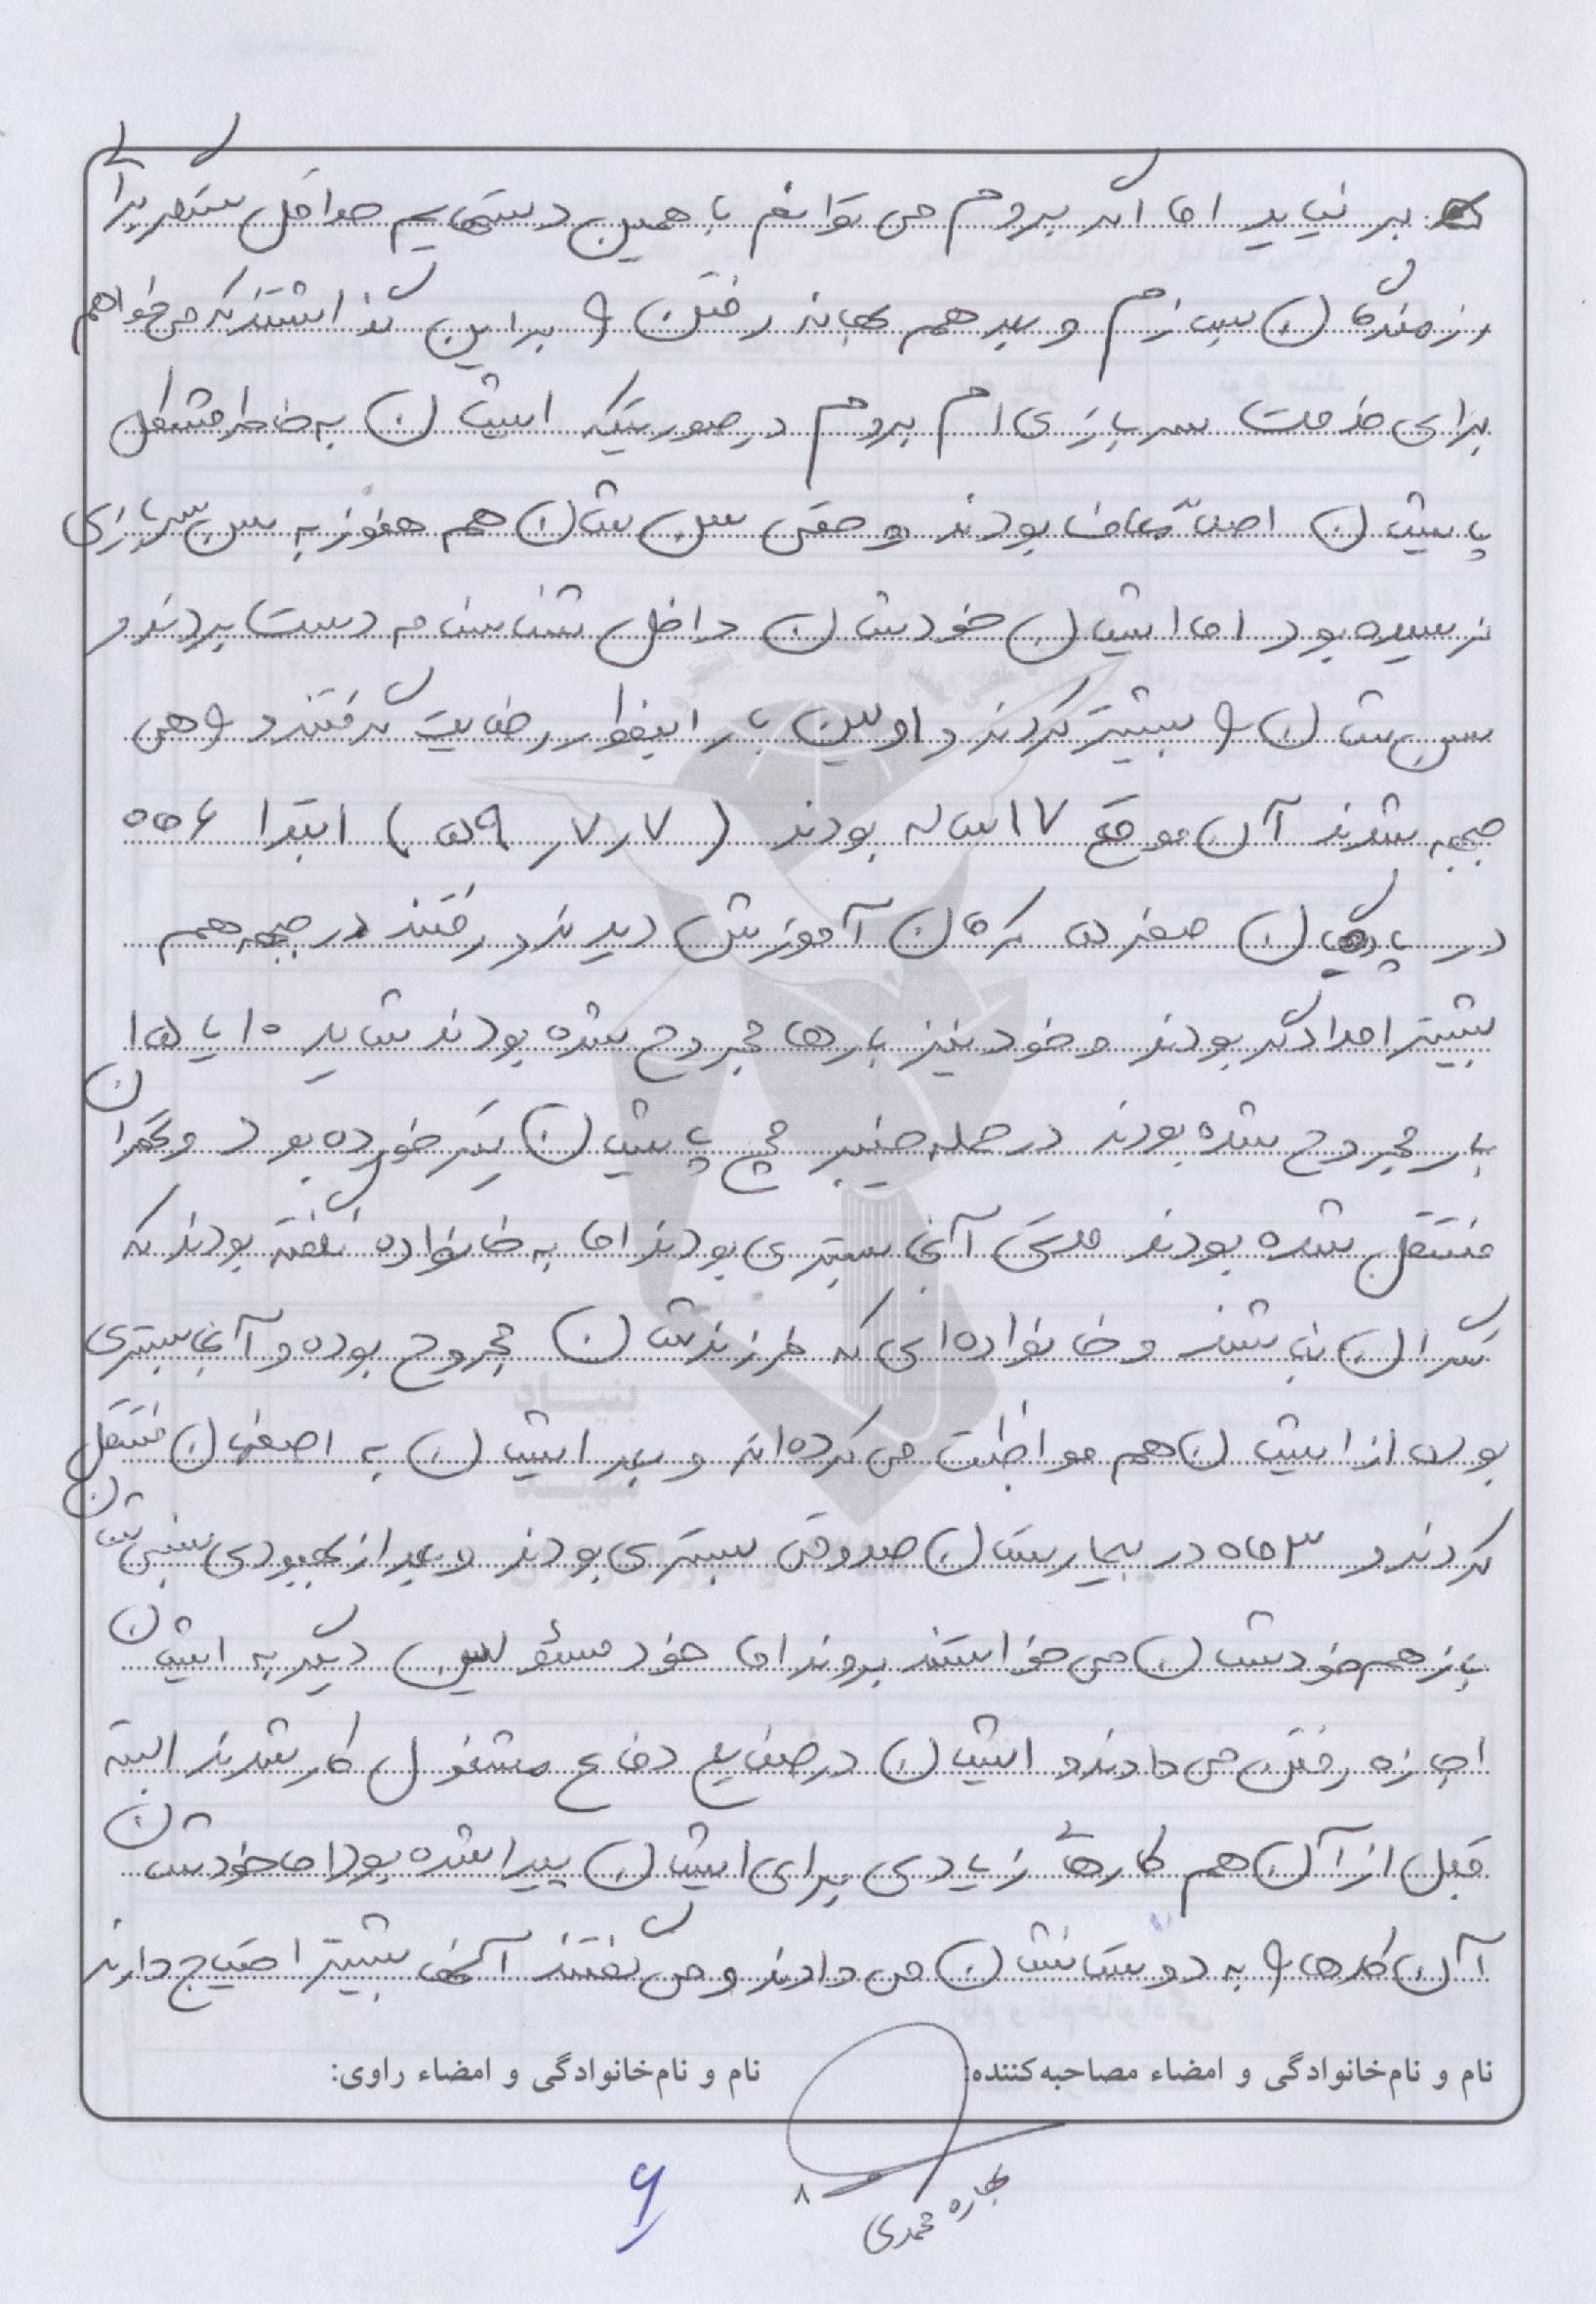 بر نیاید اما اگر بروم می توانم با همین دستهایم حداقل سنگر برای
رزمندگان بسازم و بعد هم بهانه رفتن و براین گذاشتند که می خواهم
برای خدمت سربازی ام بروم در صورتیکه ایشان به خاطر مشکل
پایشان اصلاً معاف بودند و حتی سن شان هم هنوز به سن سربازی
نرسیده بود اما ایشان خودشان داخل شناسنامه دست بردند و
سن شان و بیشتر کردند و اولین بار اینطور رضایت گرفتند و راهی
جبهه شدند آن موقع ۱۷ ساله بودند (۵۹/۷/۷) ابتدا ۵۵۶
در پادگان صفر ۵ کرمان آموزش دیدند و رفتند در جبهه هم
بیشتر امدادگر بودند و خود نیز بارها مجروح شده بودند شاید ۱۰ یا ۱۵
بار مجروح شده بودند در حمله خیبر مچ پایشان تیر خورده بود و تهران
منتقل شده بودند مدتی آنجا بستری بودند اما به خانواده نگفته بودند که
نگران نباشند و خانواده ای که فرزندشان مجروح بوده و آنجا بستری
بوده از ایشان هم مواظبت می کرده اند و بعد ایشان به اصفهان منتقل
کردند و ۳ ماه در بیمارستان صدوقی بستری بودند و بعد از بهبودی نسبی شان
باز هم خودشان می خواستند بروند اما خود مسئولین دیگر به ایشان
اجازه رفتن می دادند و ایشان در صنایع دفاع مشغول کار شدند البته
قبل از آن هم کارهای زیادی برای ایشان پیدا شده بود اما خودشان
آن کارها و به دوستانشان می دادند و می گفتند آنها بیشتر احتیاج دارند
نام و نام‌خانوادگی و امضاء مصاحبه‌کننده: نام و نام‌خانوادگی و امضاء راوی:
بهاره محمدی
۸
۶